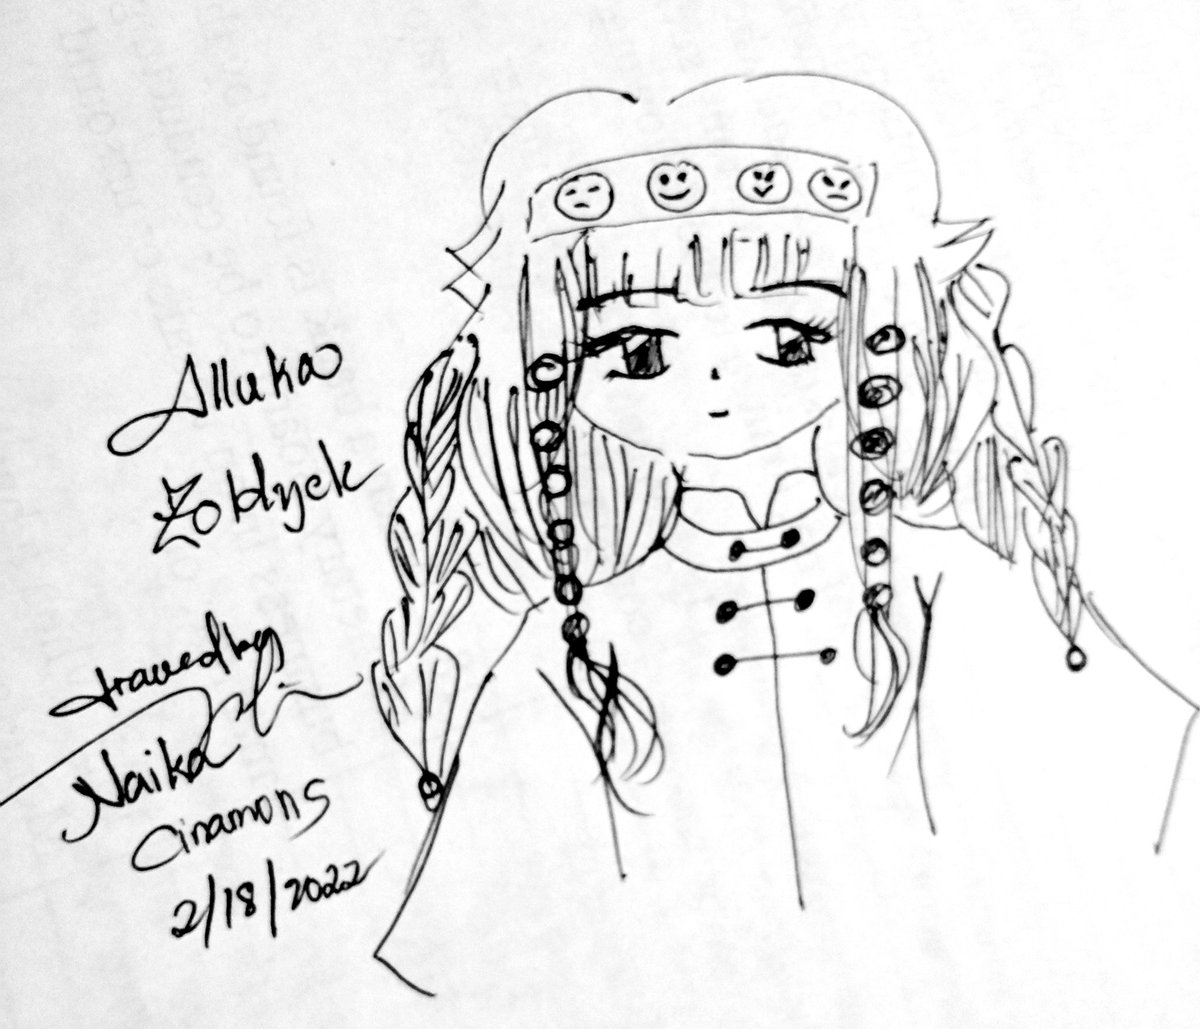 Alluka
Zoldyck
drawed by
Naika
Cinamons
2/18/2022